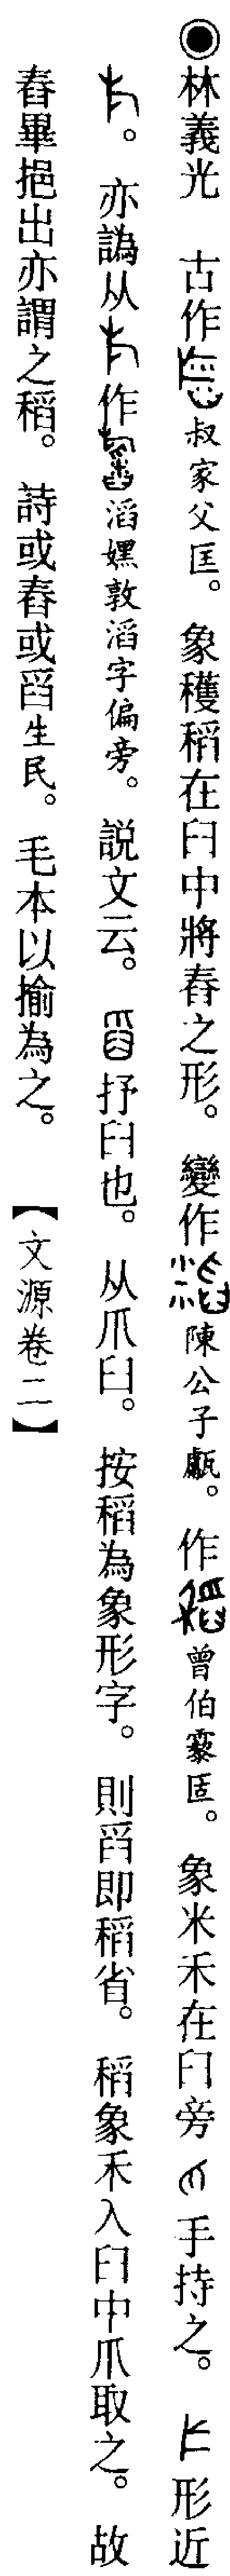 ◉林義光　古作叔家父匡。　象穫稻在臼中將舂之形。　變作陳公子甗。　作曾伯霥匡。　象米禾在臼旁手持之。　形近
。　亦譌从作滔嫼敦滔字偏旁。　説文云。　舀抒臼也。　从爪臼。　按稻為象形字。　則舀即稻省。　稻象禾入臼中爪取之。　故
舂畢挹出亦謂之稻。　詩或舂或舀生民。　毛本以揄為之。　【文源卷二】